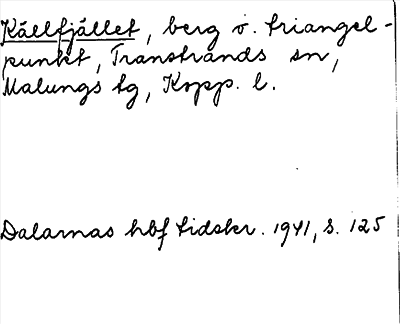 Källfjället, berg o. triangel-
punkt, Transtrands sn,
Malungs tg, Kopp. l.
Dalarnas hbf tidskr. 1941, s. 125